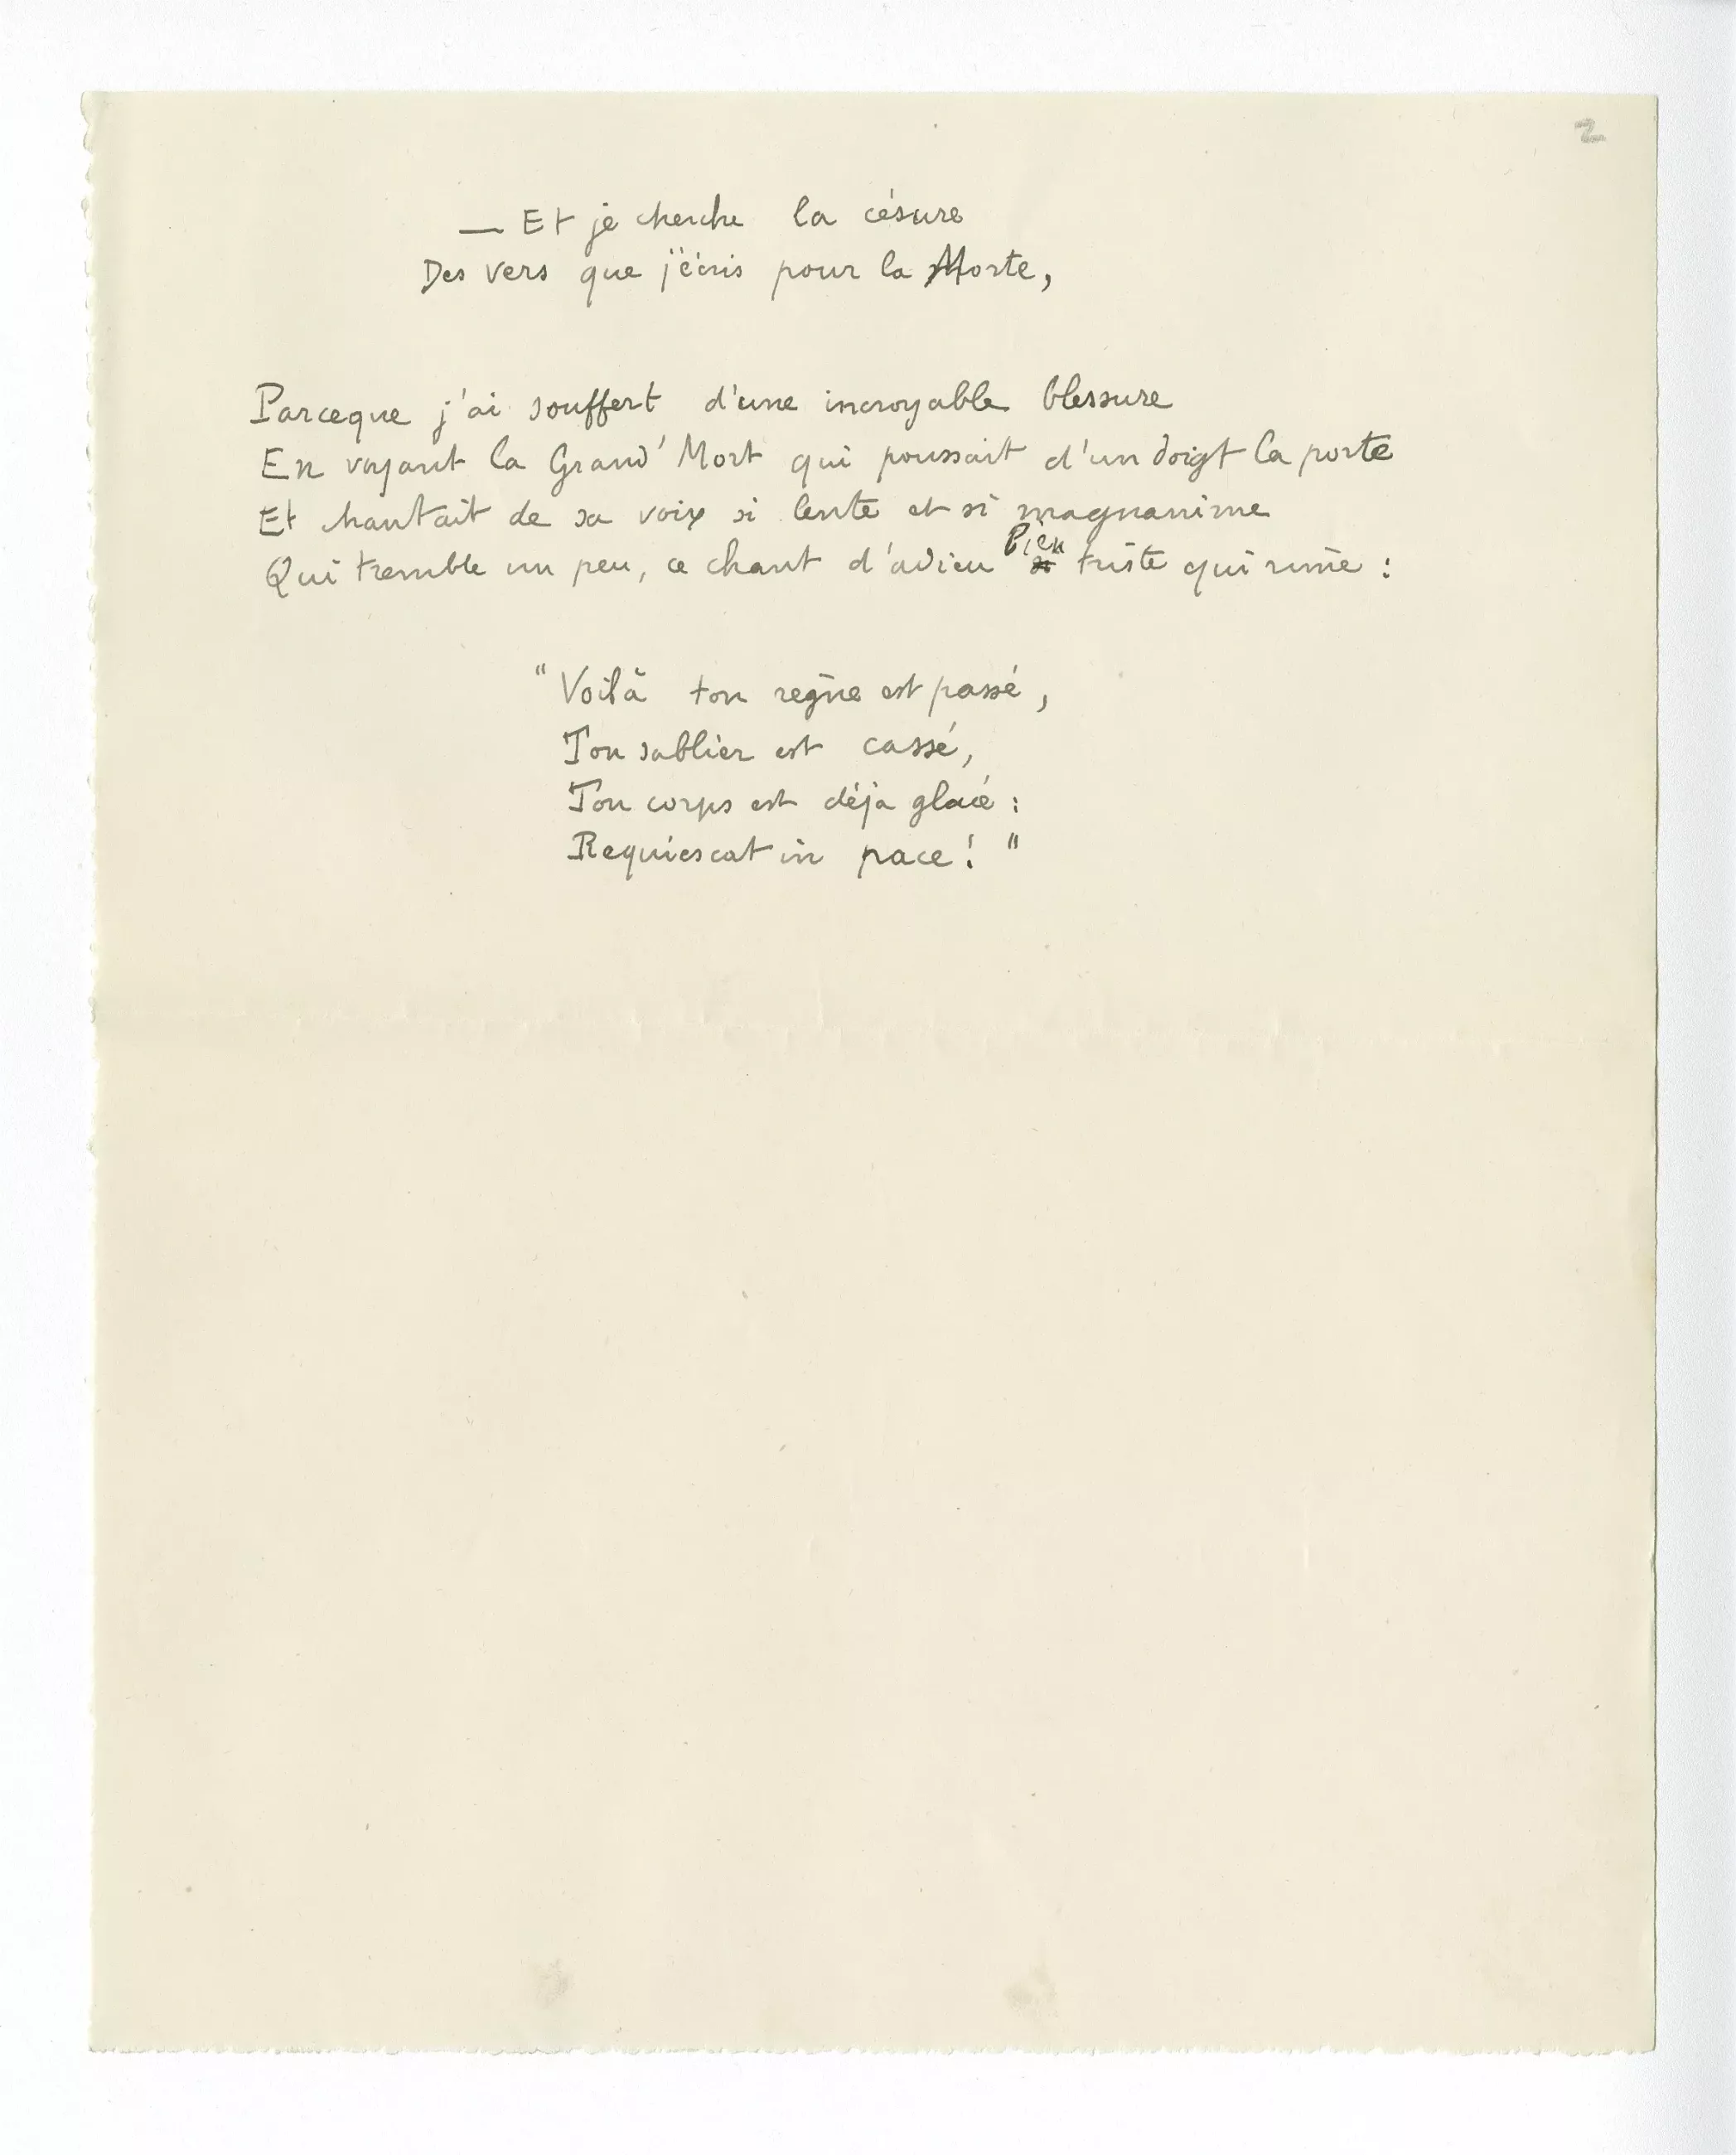 2
— Et je cherche la césure
Des vers que j'écris pour la Morte,
Parceque j'ai souffert d'une incroyable blessure
En voyant la Grand' Mort qui poussait d'un doigt la porte
Et chantait de sa voix si lente et si magnanime
Qui tremble un peu, ce chant d'adieu bien triste qui rime :
"Voilà ton règne est passé,
Ton sablier est cassé,
Ton corps est déja glacé :
Requiescat in pace ! "